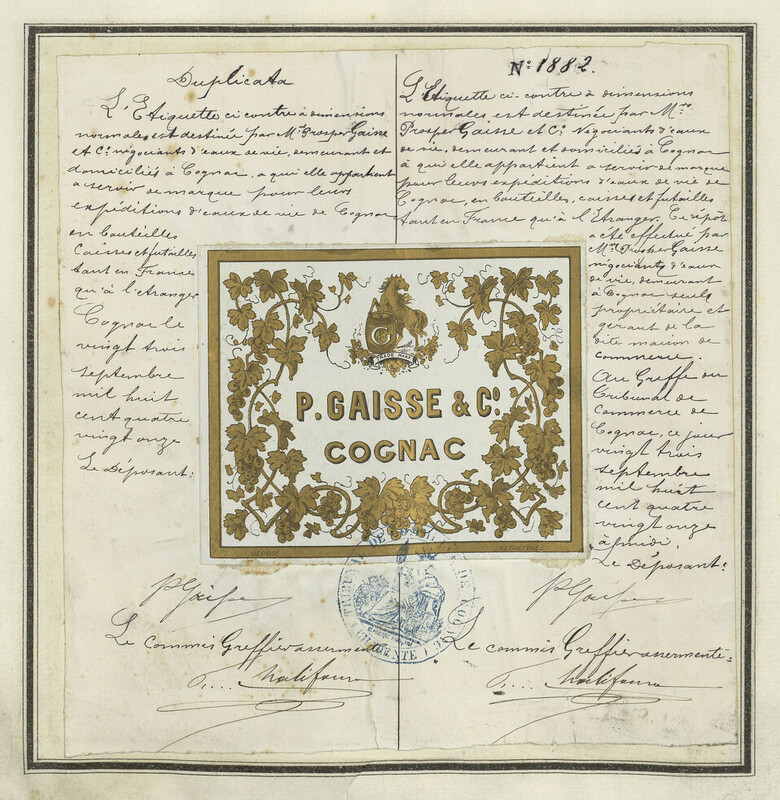 Duplicata
L'Etiquette ci contre à dimensions
normales est destinée par Mr Prosper Gaisse
et Cie négociants d'eaux de vie, demeurant et
domiciliés à Cognac, a qui elle appartient
a servir de marque pour leurs
expéditions d'eaux de vie de Cognac
en bouteilles
Caisses et futailles
tant en France
qu'à l'etranger
Cognac le
vingt trois
septembre
mil huit
cent quatre
vingt onze
Le Déposant:
P Gaisse
Le commis Greffier assermenté
No 1882.
L'Etiquette ci contre à dimensions
normales, est destinée par Mr
Prosper Gaisse et Cie Négociants d'eaux
de vie, demeurant et domiciliés à Cognac
à qui elle appartient a servir de marque
pour leurs expéditions d'eaux de vie de
Cognac, en bouteilles, caisses et futailles
tant en France qu'à l'Etranger. Ce dépôt
a été effectué par
Mr Prosper Gaisse
négociants d'eaux
de vie, demeurant
à Cognac seuls
propriétaire et
gerant de la
dite maison de
commerce.
Au Greffe du
Tribunal de
Commerce de
Cognac, ce jour
vingt trois
septembre
mil huit
cent quatre
vingt onze
à midi.
Le Déposant:
P Gaisse
Le commis Greffier assermenté:
G
TRADE MARK
P. GAISSE & Co.
COGNAC
DÉPOSÉ
REGISTERED
TRIBUNAL DE COMMERCE DE COGNAC
CHARENTE